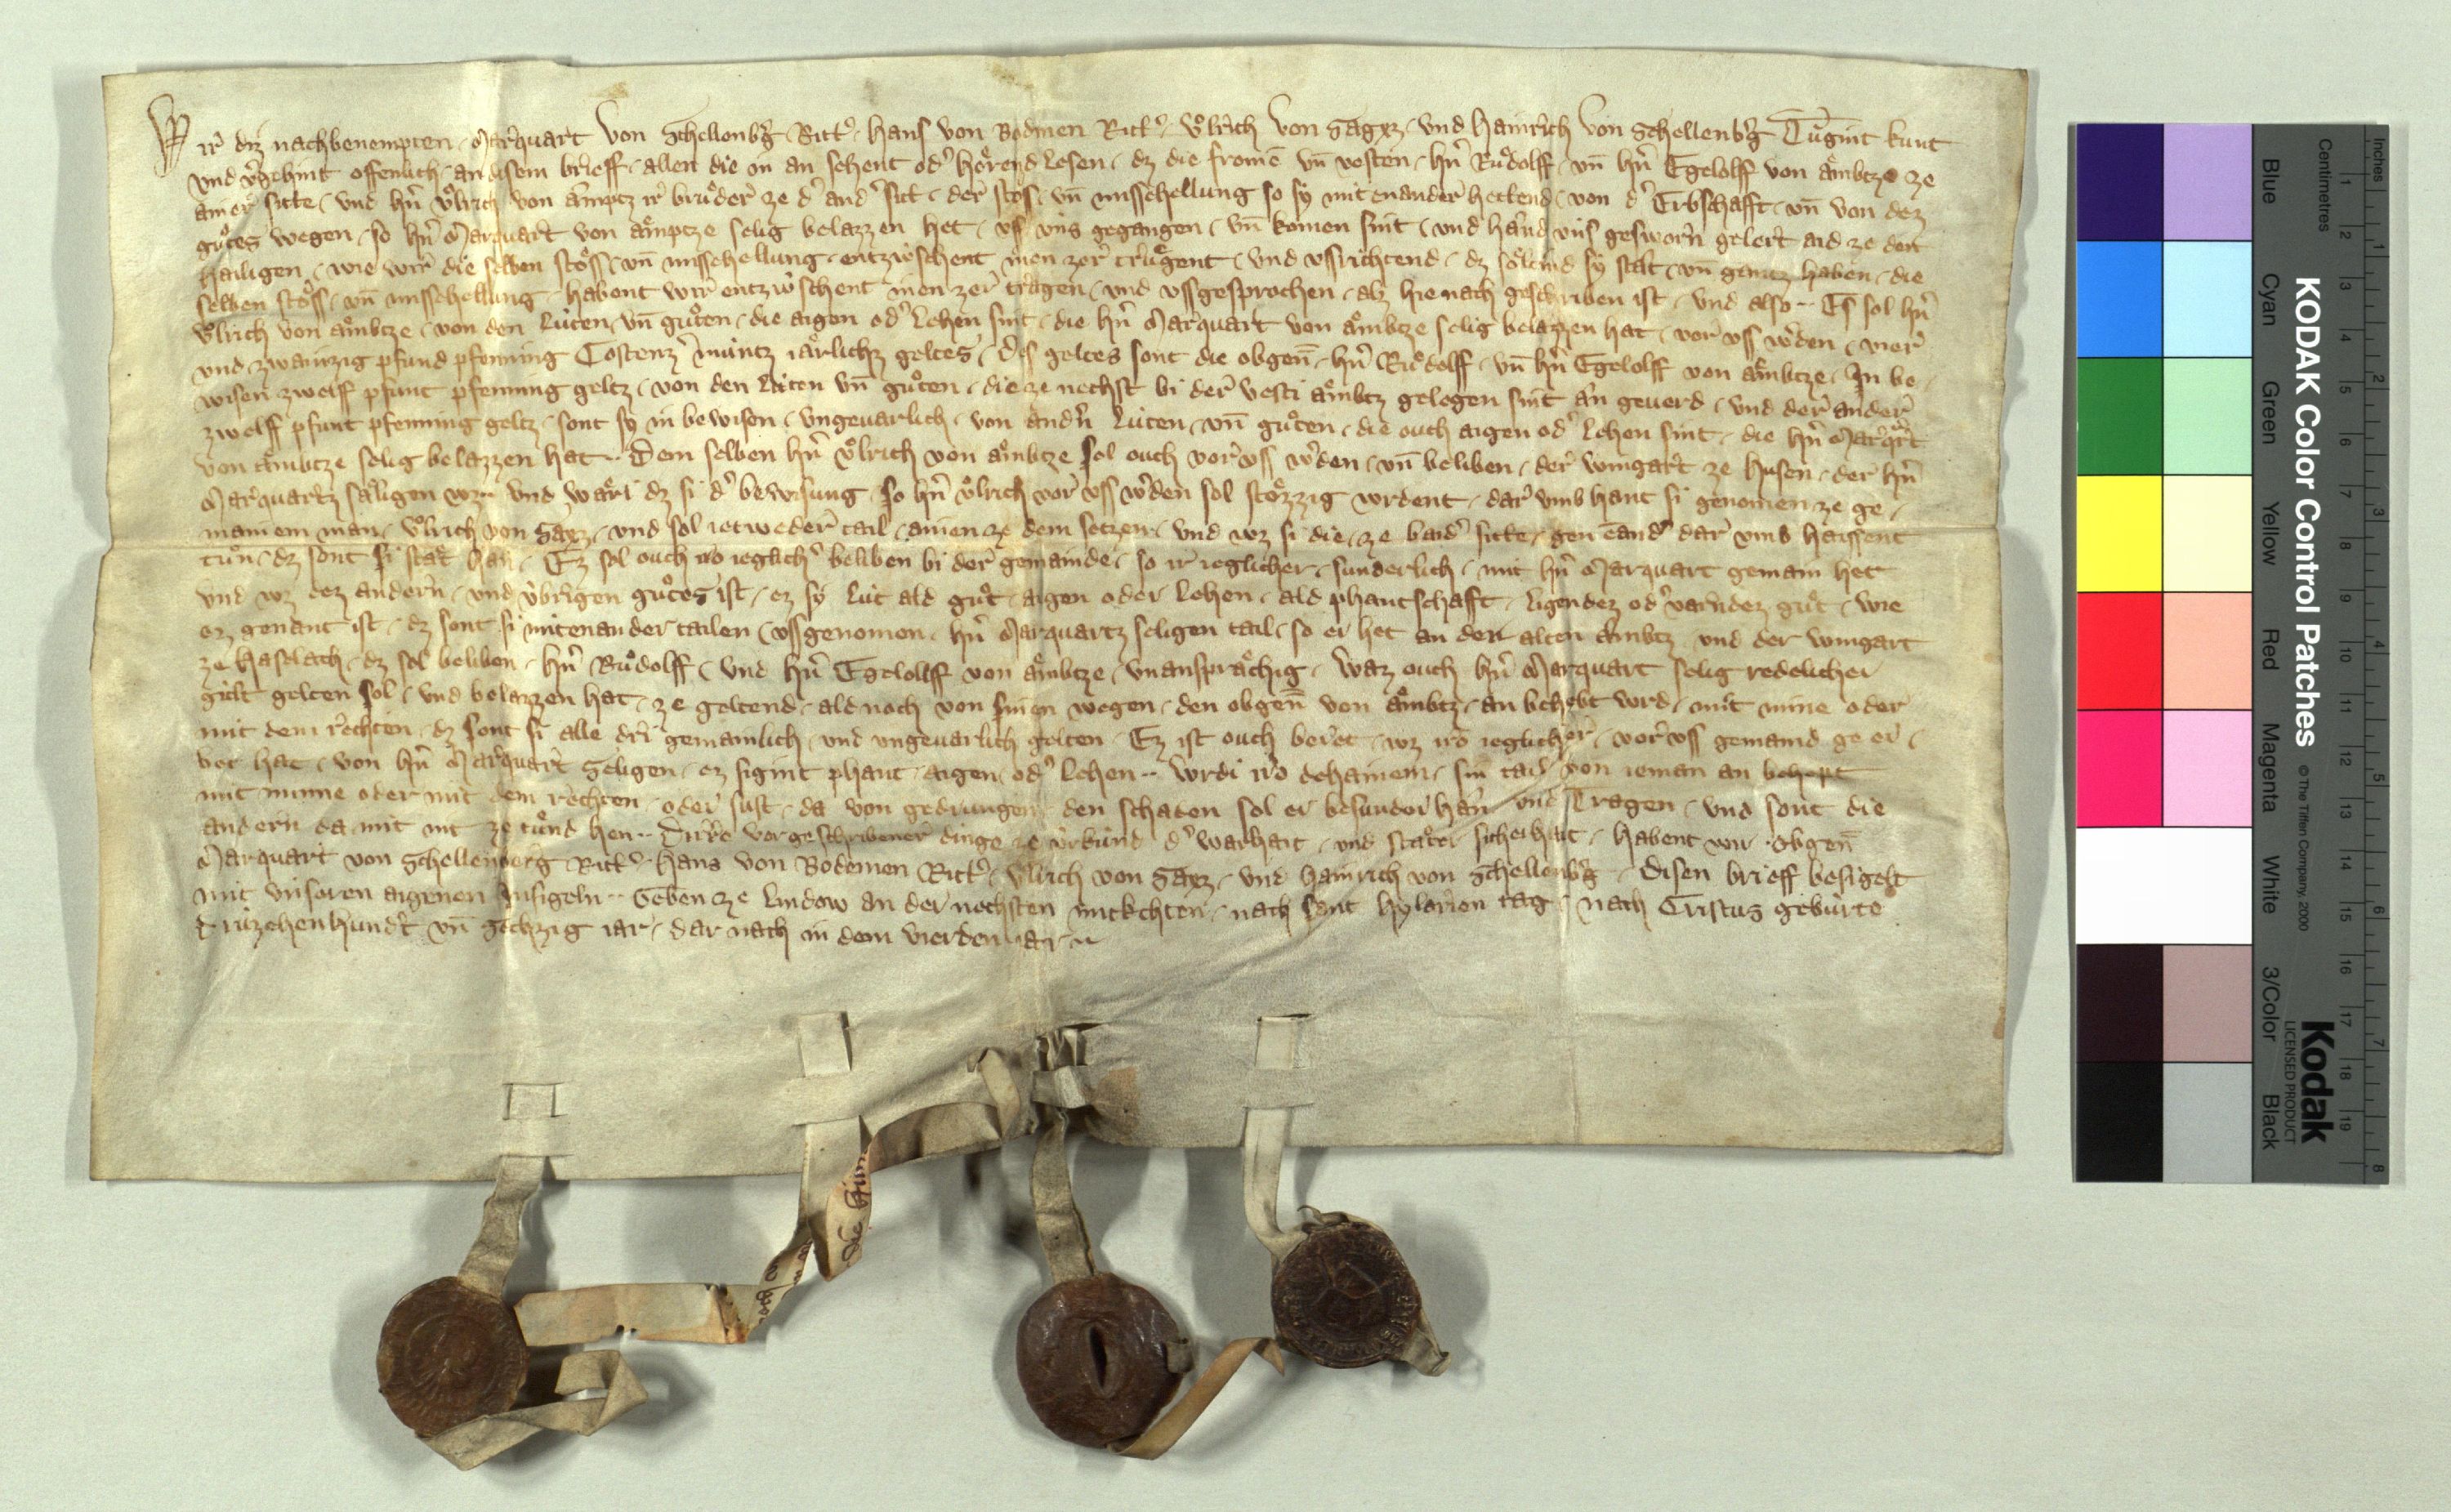 Wir diz nachbenempten Marquart von Schellenbg̑ Ritt᾽ Hans von Bodmen Ritt᾽ Vͦlrich von Sagxz und Hainrich von Schellenbg̑ Tůgint kunt
und v᾽gehint offenlich an disem brieff allen die in an sehent od᾽ hoͤrend lesen dz die fromē vn̄ vesten hn̄ Ruͦdolff vn̄ hn̄ Egelolff von aͤmbtze ze
ainer sitte und hn̄ Vͦlrich von aͤmptz ir bruͤder ze d᾽ and᾽ sitt der stoͤs vn̄ misschellung so sy mitenander hettend von d᾽ Erbschafft vn̄ von dez
guͦtes wegen so hn̄ Marquart von aͤmptze selig belazzen het vff vns gegangen vn̄ komen sint und hand vns gesworn gelert aid ze den
hailigen wie wir die selben stoͤss vn̄ misschellung entzwùschent inen zer truͤgent und vssrichtend dz soͤltind sy staͤt vn̄ gantz haben die
selben stoͤss vn̄ misschellung habent wir entzwùschent inen zer tragen und vssgesprochen alz hie nach geschriben ist und also Es sol hn̄
Vͦlrich von aͤmbtze von den Lùten vn̄ guͦten die aigen od᾽ Lehen sint die hn̄ Marquart von aͤmbtze selig belazzen hat vor vss w᾽den vier
und zwainzig pfund pfenning Costenz᾽ mùntz iaͤrlichz geltes Dis geltes sont die obgen̄ hn̄ Ruͦdolff vn̄ hn̄ Egelolff von aͤmbtze In be
wisen zwelff pfunt pfenning geltz von den Lùten vn̄ guͦten die ze nechst bi der vesti aͤmbtz gelegen sint an geuerd und der ander
zwelff pfunt pfenning geltz sont sy in bewisen vngeuarlich von andn̄ Lùten vn̄ guͦten die ouch aigen od᾽ Lehen sint die hn̄ Marqrt
von aͤmbtze selig belazzen hat Dem selben hn̄ Vͦlrich von aͤmbtze sol ouch vor vss w᾽den vn̄ beliben der wingart ze husen der hn̄
Marquartz saͤligen wz und waͤri dz si d᾽ bewisung so hn̄ Vͦlrich vor vss w᾽den sol stoͤzzig wrdent dar vmb hant si genomen ze ge
mainem man Vͦlrich von Saxz und sol ietweder tail ainen ze dem setzen und wz si die ze baid᾽ sitte gen eand᾽ dar vmb haissent
tuͦn dz sont si staͤt han Ez sol ouch iro ieglich᾽ beliben bi der gemainde so ir ieglicher sunderlich mit hn̄ Marquart gemain het
und wz dez andern und ùbrigen guͦtes ist ez sy Lùt ald guͦt aigen oder Lehen ald phantschafft ligendez od᾽ varndez guͦt wie
ez genant ist dz sont si mitenander tailen vssgenomen hn̄ Marquartz seligen tail so er het an den alten aͤmbtz und der wingart
ze Haslach dz sol beliben hn̄ Ruͦdolff und hn̄ Egelolff von aͤmbtze vnanspraͤchig Waz ouch hn̄ Marquart selig redelicher
gùlt gelten sol und belazzen hat ze geltend ald noch von sinen wegen den obgen̄ von aͤmbtz an behebt wrd mit mine oder
mit dem rechten dz sont si alle dri gemainlich und vngeuarlich gelten Ez ist ouch beret wz iro ieglicher vor vss gemaind ge er
bet hat von hn̄ Marquart seligen ez sigint phant aigen od᾽ Lehen wrdi iro dehainem sin tail von ieman an behept
mit minne oder mit dem rechten oder sust da von gedrungen den schaden sol er besunder han und Tragen und sont die
andern da mit nit ze tuͦnd hen Dirre vorgeschribener dinge ze ùrkùnd d᾽ warhait und staͤter sicherhait habent wir obgen̄
Marquart von Schellenberg Ritt᾽ Hans von Bodemen Ritt᾽ Vlrich von Saxz und Hainrich von Schellenbg̑ Disen brieff besigelt
mit vnseren aigenen Insigeln Geben ze Lindow an der nechsten mitkchten nach sant hylarien tag nach Cristus gebùrte
drùzehenhundt vn̄ Sechzig iar dar nach in dem vierden iar
KODAK Color Control Patches
© The Tiffen Company, 2000
Kodak
LICENSED PRODUCT
Centimetres
Inches
Blue
Cyan
Green
Yellow
Red
Magenta
White
3/Color
Black